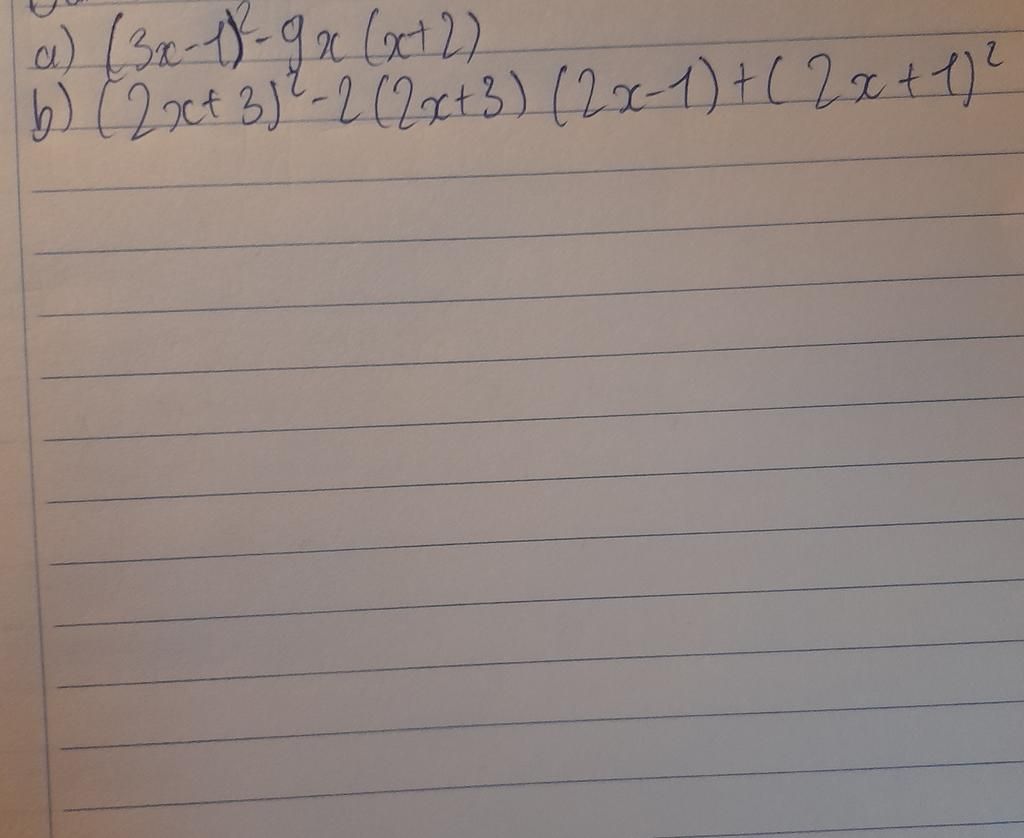 a) (3x-1)²-9x(x+2)
b) (2x+3)²-2(2x+3)(2x-1)+(2x+1)²